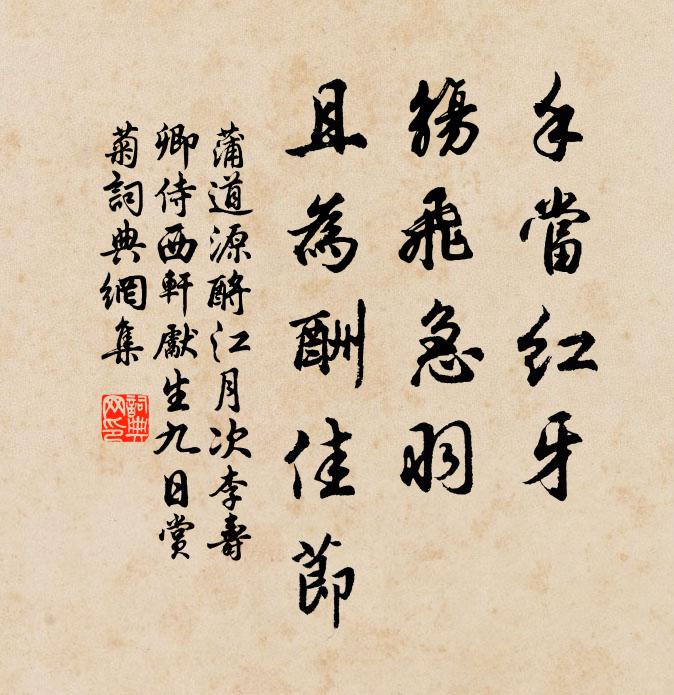 手當紅牙
觴飛急羽
且為酬佳節
蒲道源酹江月次李壽
卿侍西軒獻生九日賞
菊詞典網集
詞典
网印